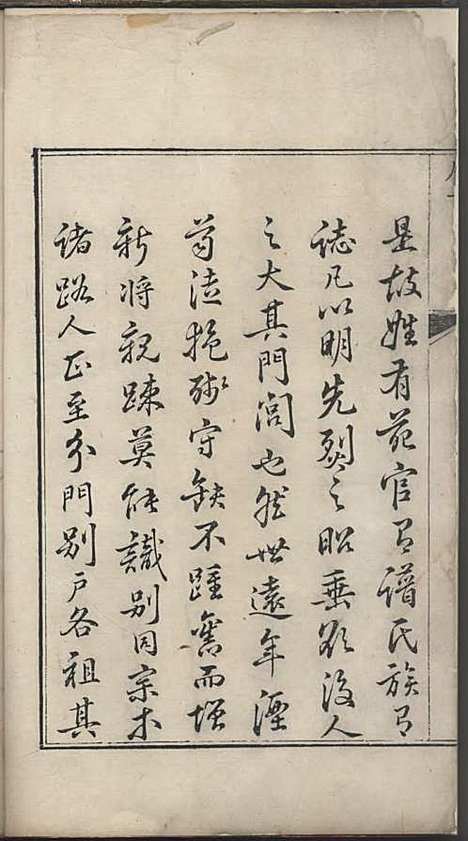 是故姓有苑官有譜氏族有
誌凡以明先烈之昭垂啟後人
之大其門閭也然世遠年湮
苟徒抱殘守缺不踵舊而增
新將親疎莫能識別同宗本
諸路人甚至分門別戶各祖其